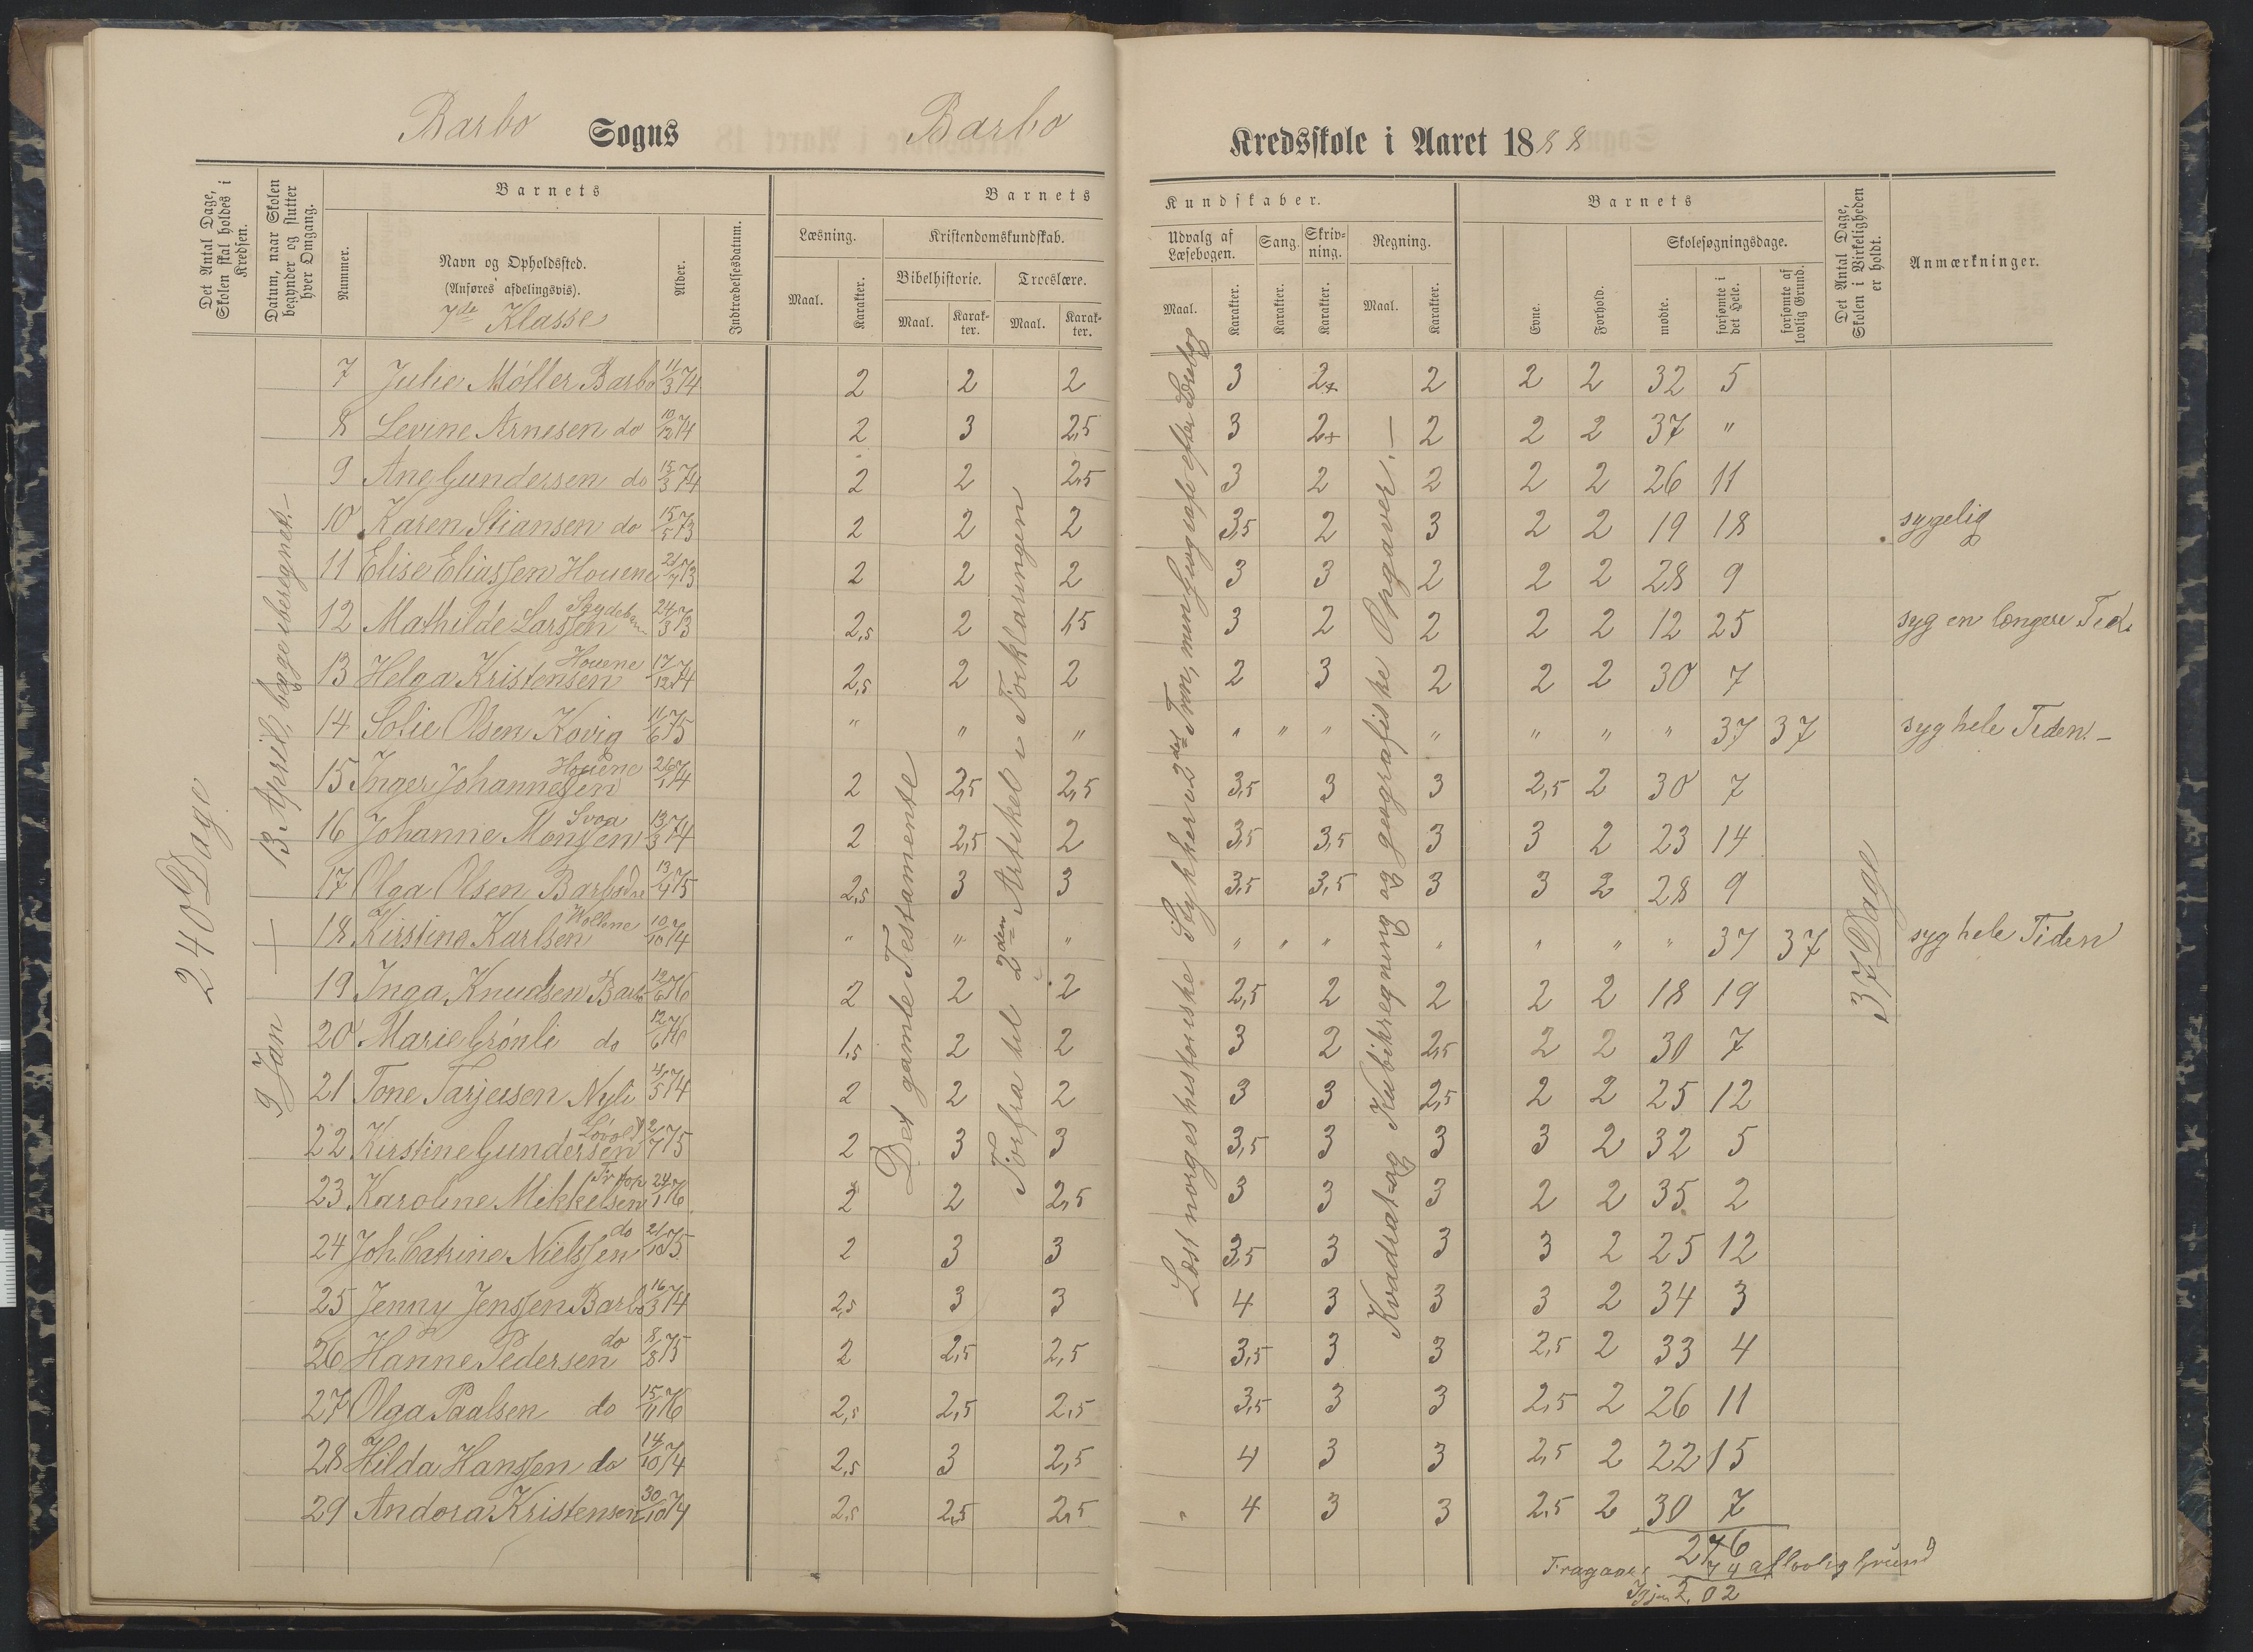 Barbo Sogns Barbo Kredsskole i Aaret 1888
Det Antal Dage, Skolen skal holdes i Kredsen.
Datum, naar Skolen begynder og slutter hver Omgang.
Barnets
Nummer.
Navn og Opholdssted.
(Anføres afdelingsvis).
7de Klasse
Alder.
Indtrædelsesdatum.
Barnets Kundskaber.
Læsning.
Maal. Karakter.
Kristendomskundskab.
Bibelhistorie. Troeslære.
Maal. Karakter. Maal. Karakter.
Udvalg af Læsebogen.
Maal. Karakter.
Sang. Karakter.
Skrivning. Karakter.
Regning.
Maal. Karakter.
Barnets
Evne. Forhold.
Skolesøgningsdage.
mødte. forsømte i det Hele. forsømte af lovlig Grund.
Det Antal Dage, Skolen i Virkeligheden er holdt.
Anmærkninger.
240 Dage
9 Jan — 13 April, begge iberegnet.—
Det gamle Testamente
Forfra til 2den Artikel i Forklaringen
Læst norgeshistoriske Stykker i 2det Trin, men Geografi efter Lærebog
Kvadrat og Kubikregning og geografiske Opgaver.—
37 Dage
7 Julie Møller Barbo 11/3 74 2 2 2 3 2+ 2 2 2 32 5
8 Levine Arnesen do 10/12 74 2 3 2,5 3 2+ 2 2 2 37 "
9 Ane Gundersen do 15/3 74 2 2 2,5 3 2 2 2 2 26 11
10 Karen Stiansen do 15/5 73 2 2 2 3,5 2 3 2 2 19 18 sygelig
11 Elise Eliassen Houene 21/7 73 2 2 2 3 3 2 2 2 28 9
12 Mathilde Larssen 24/3 73 2,5 2 1,5 3 2 2 2 2 12 25 syg en længere Tid.
13 Helga Kristensen Houene 17/12 74 2,5 2 2 2 3 2 2 2 30 7
14 Solie Olsen Kovig 11/6 75 " " " " " " " " " " 37 37 syg hele Tiden.—
15 Inger Johannessen Houene 26/1 74 2 2,5 2,5 3,5 3 3 2,5 2 30 7
16 Johanne Monssen Svoa 13/3 74 2 2,5 2 3,5 3,5 3 3 2 23 14
17 Olga Olsen 13/4 75 2,5 3 3 3,5 3,5 3 3 2 28 9
18 Kirstine Karlsen 10/10 74 " " " " " " " " " " 37 37 syg hele Tiden
19 Inga Knudsen Barbo 12/6 76 2 2 2 2,5 2 2 2 2 18 19
20 Marie Grönli do 12/6 76 1,5 2 2 3 2 2,5 2 2 30 7
21 Tone Tarjeisen Nyli 4/5 74 2 2 2 3 3 2,5 2 2 25 12
22 Kirstine Gundersen Lövold 2/7 75 2 3 3 3,5 3 3 3 2 32 5
23 Karoline Mikkelsen 24/1 76 2 2 2,5 3 3 3 2 2 35 2
24 Joh. Catrine Nielssen do 21/10 75 2 3 3 3,5 3 3 3 2 25 12
25 Jenny Jenssen Barbo 16/3 74 2,5 3 3 4 3 3 3 2 34 3
26 Hanne Pedersen do 8/8 75 2 2,5 2,5 3,5 3 3 2,5 2 33 4
27 Olga Paalsen do 15/11 76 2,5 2,5 2,5 3,5 3 3 2,5 2 26 11
28 Hilda Hanssen do 14/10 74 2,5 3 2,5 4 3 3 2,5 2 22 15
29 Andora Kristensen 30/10 74 2,5 2,5 2,5 " 4 3 3 2,5 2 30 7
276
Fragaar 74 af lovlig Grund
Igjen 202